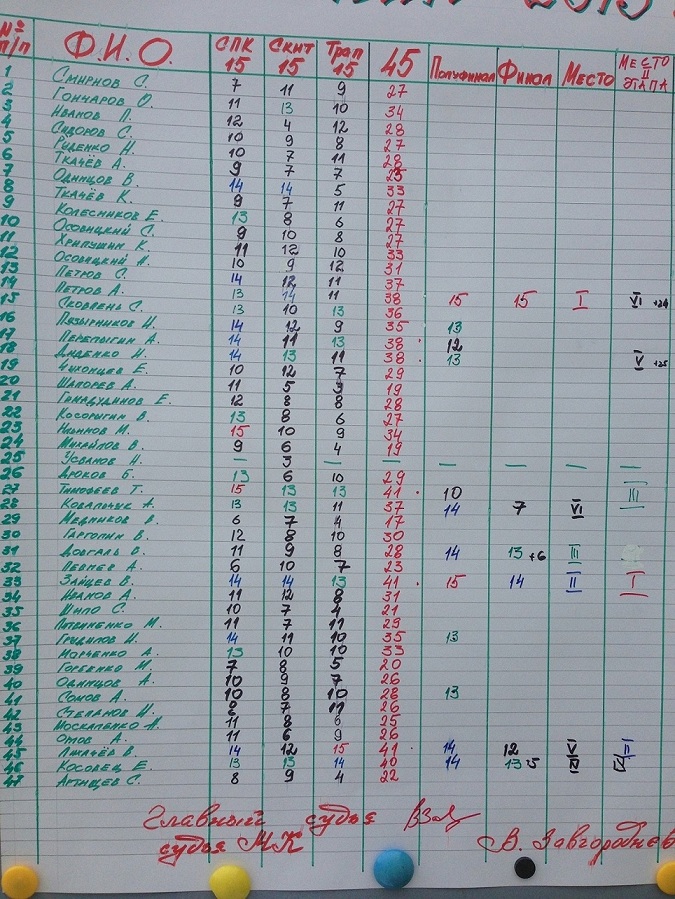 № п/п Ф.И.О. СПК 15 Скит 15 Трап 15 45 Полуфинал Финал Место Место II этапа
1 Смирнов С. 7 11 9 27
2 Гончаров О. 11 13 10 34
3 Иванов П. 12 4 12 28
4 Сидоров С. 10 9 8 27
5 Руденко Н. 10 7 11 28
6 Ткачёв А. 9 7 7 23
7 Одинцов В. 14 14 5 33
8 Ткачёв К. 9 7 11 27
9 Колесников Е. 13 8 6 27
10 Осовицкий С. 9 10 8 27
11 Хрипушин К. 11 12 10 33
12 Осовицкий И. 10 9 12 31
13 Петров С. 14 12 11 37
14 Петров А. 13 14 11 38 15 15 I VI +24
15 Сковпень С. 13 10 13 36
16 И. 14 12 9 35 13
17 Перепыгин А. 14 11 13 38 12
18 Диденко Н. 14 13 11 38 13 V +25
19 Е. 10 12 7 29
20 Шапорев А. 11 5 3 19
21 Е. 12 8 8 28
22 Косорыгин В. 13 8 6 27
23 М. 15 10 9 34
24 Михайлов В. 9 6 4 19
25 Н. — 3 — — — — — —
26 Дюков Б. 13 6 10 29
27 Тимофеев Т. 15 13 13 41 10 III
28 Ковальчук А. 13 13 11 37 14 7 VI
29 Медников В. 6 7 4 17
30 В. 12 8 10 30
31 Довгаль В. 11 9 8 28 14 13+6 III
32 А. 6 10 7 23
33 Зайцев В. 14 14 13 41 15 14 II I
34 Иванов А. 11 12 8 31
35 Шило С. 10 7 4 21
36 Литвиненко М. 11 7 11 29
37 14 11 10 35 13
38 Марченко А. 13 10 10 33
39 М. 7 8 5 20
40 Одинцов А. 10 9 7 26
41 Сомов А. 10 8 10 28 13
42 Степанов И. 8 7 11 26
43 Москаленко Н. 11 8 6 25
44 А. 11 6 9 26
45 Лихачёв В. 14 12 15 41 14 12 V II
46 Косовец Е. 13 13 14 40 14 13 5 IV IV
47 Артищев С. 8 9 4 22
Главный судья
судья МК В. Завгороднев